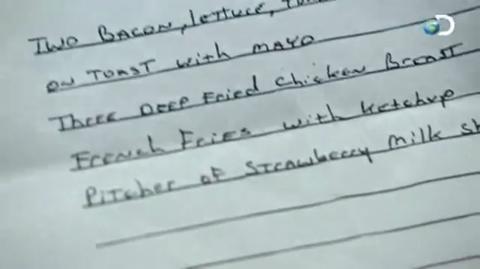 Two Bacon, lettuce,
on Toast with mayo
Three Deep Fried Chicken Breast
French Fries with Ketchup
Pitcher of Strawberry milk sh
D